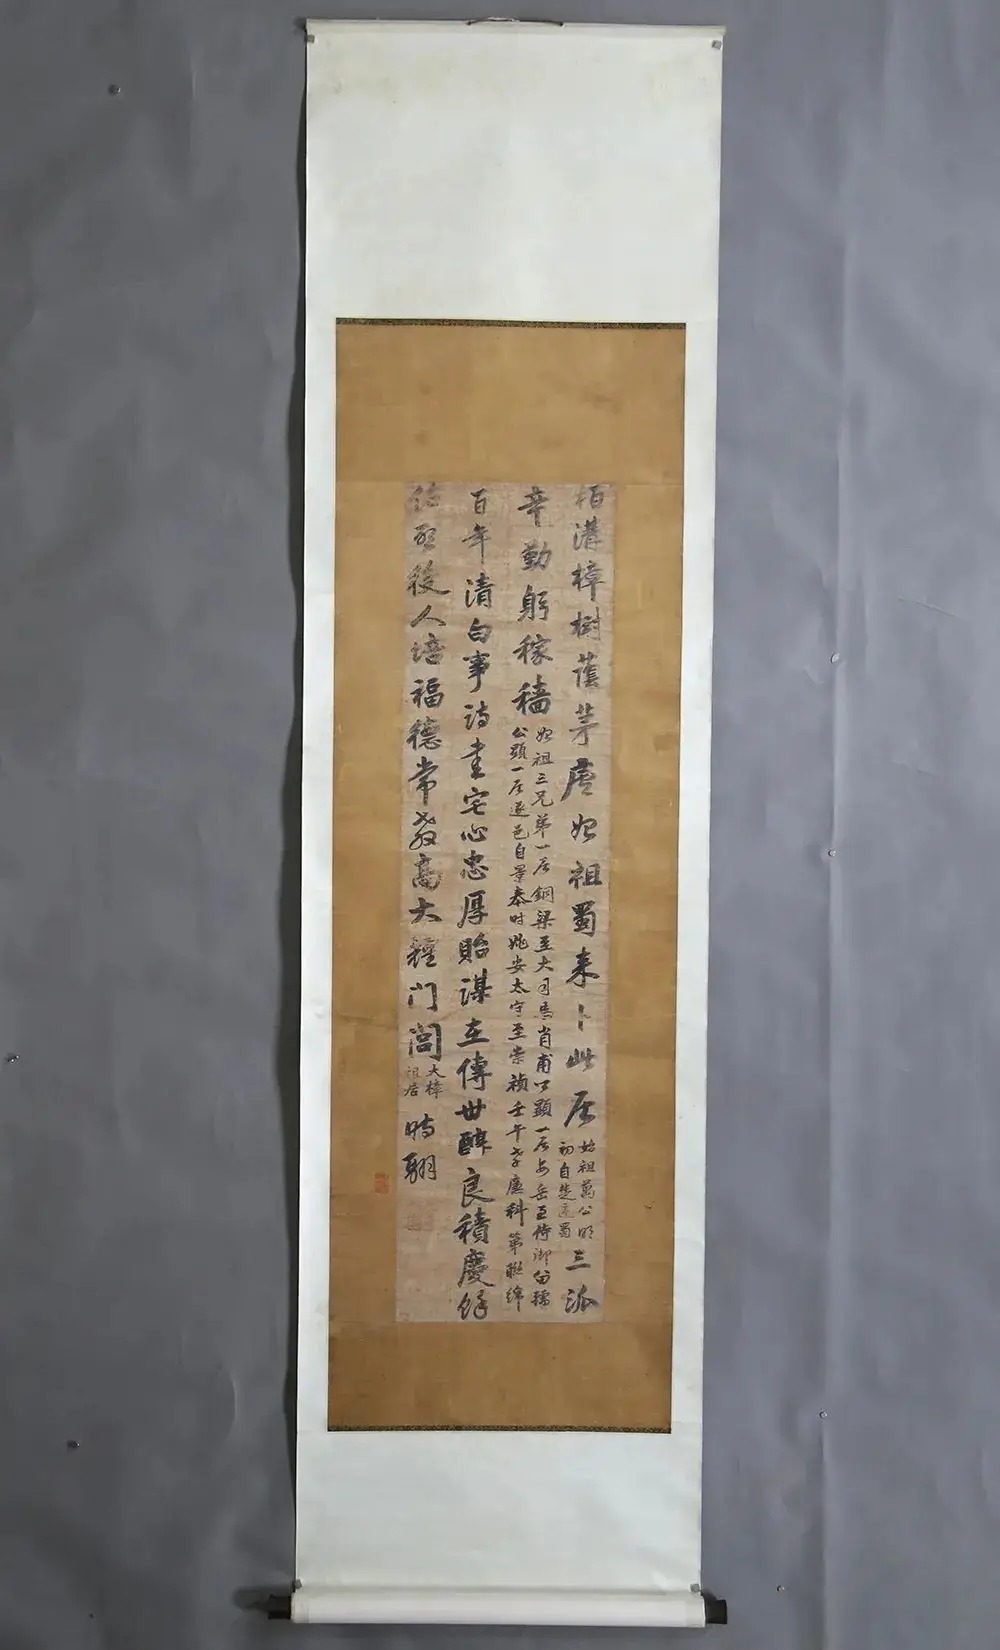 柏溝樟樹蔭茅廬始祖蜀來卜此居
始祖萬公明
初自楚遷蜀
三派
辛勤躬稼穡
始祖三兄弟一居銅梁至大司馬肖甫公顯一居安岳至侍御留孺
公顯一居遂邑自景泰時姚安太守至崇禎壬午孝廉科第聯綿
百年清白事詩書宅心忠厚貽謀在傳世醇良積慶餘
佑啟後人培福德常教高大門閭
大樟
祖居
時